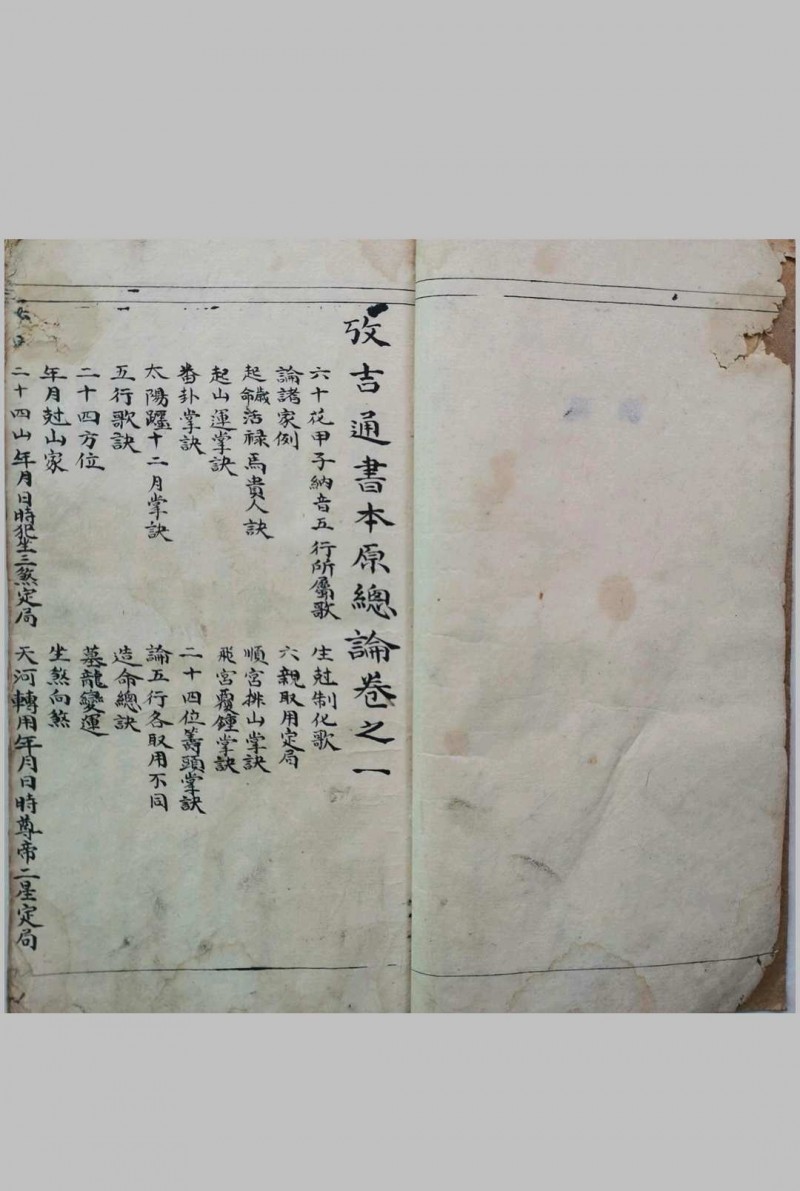 攷吉通書本原總論卷之一
六十花甲子納音五行所屬歌 生尅制化歌
論諸家例 六親取用定局
起歲命活祿馬貴人訣 順宮排山掌訣
起山運掌訣 飛宮覆鍾掌訣
番卦掌訣 二十四位籌頭掌訣
太陽躔十二月掌訣 論五行各取用不同
五行歌訣 造命總訣
二十四方位 墓龍變運
年月尅山家 坐煞向煞
二十四山年月日時犯坐三煞定局 天河轉用年月日時尊帝二星定局